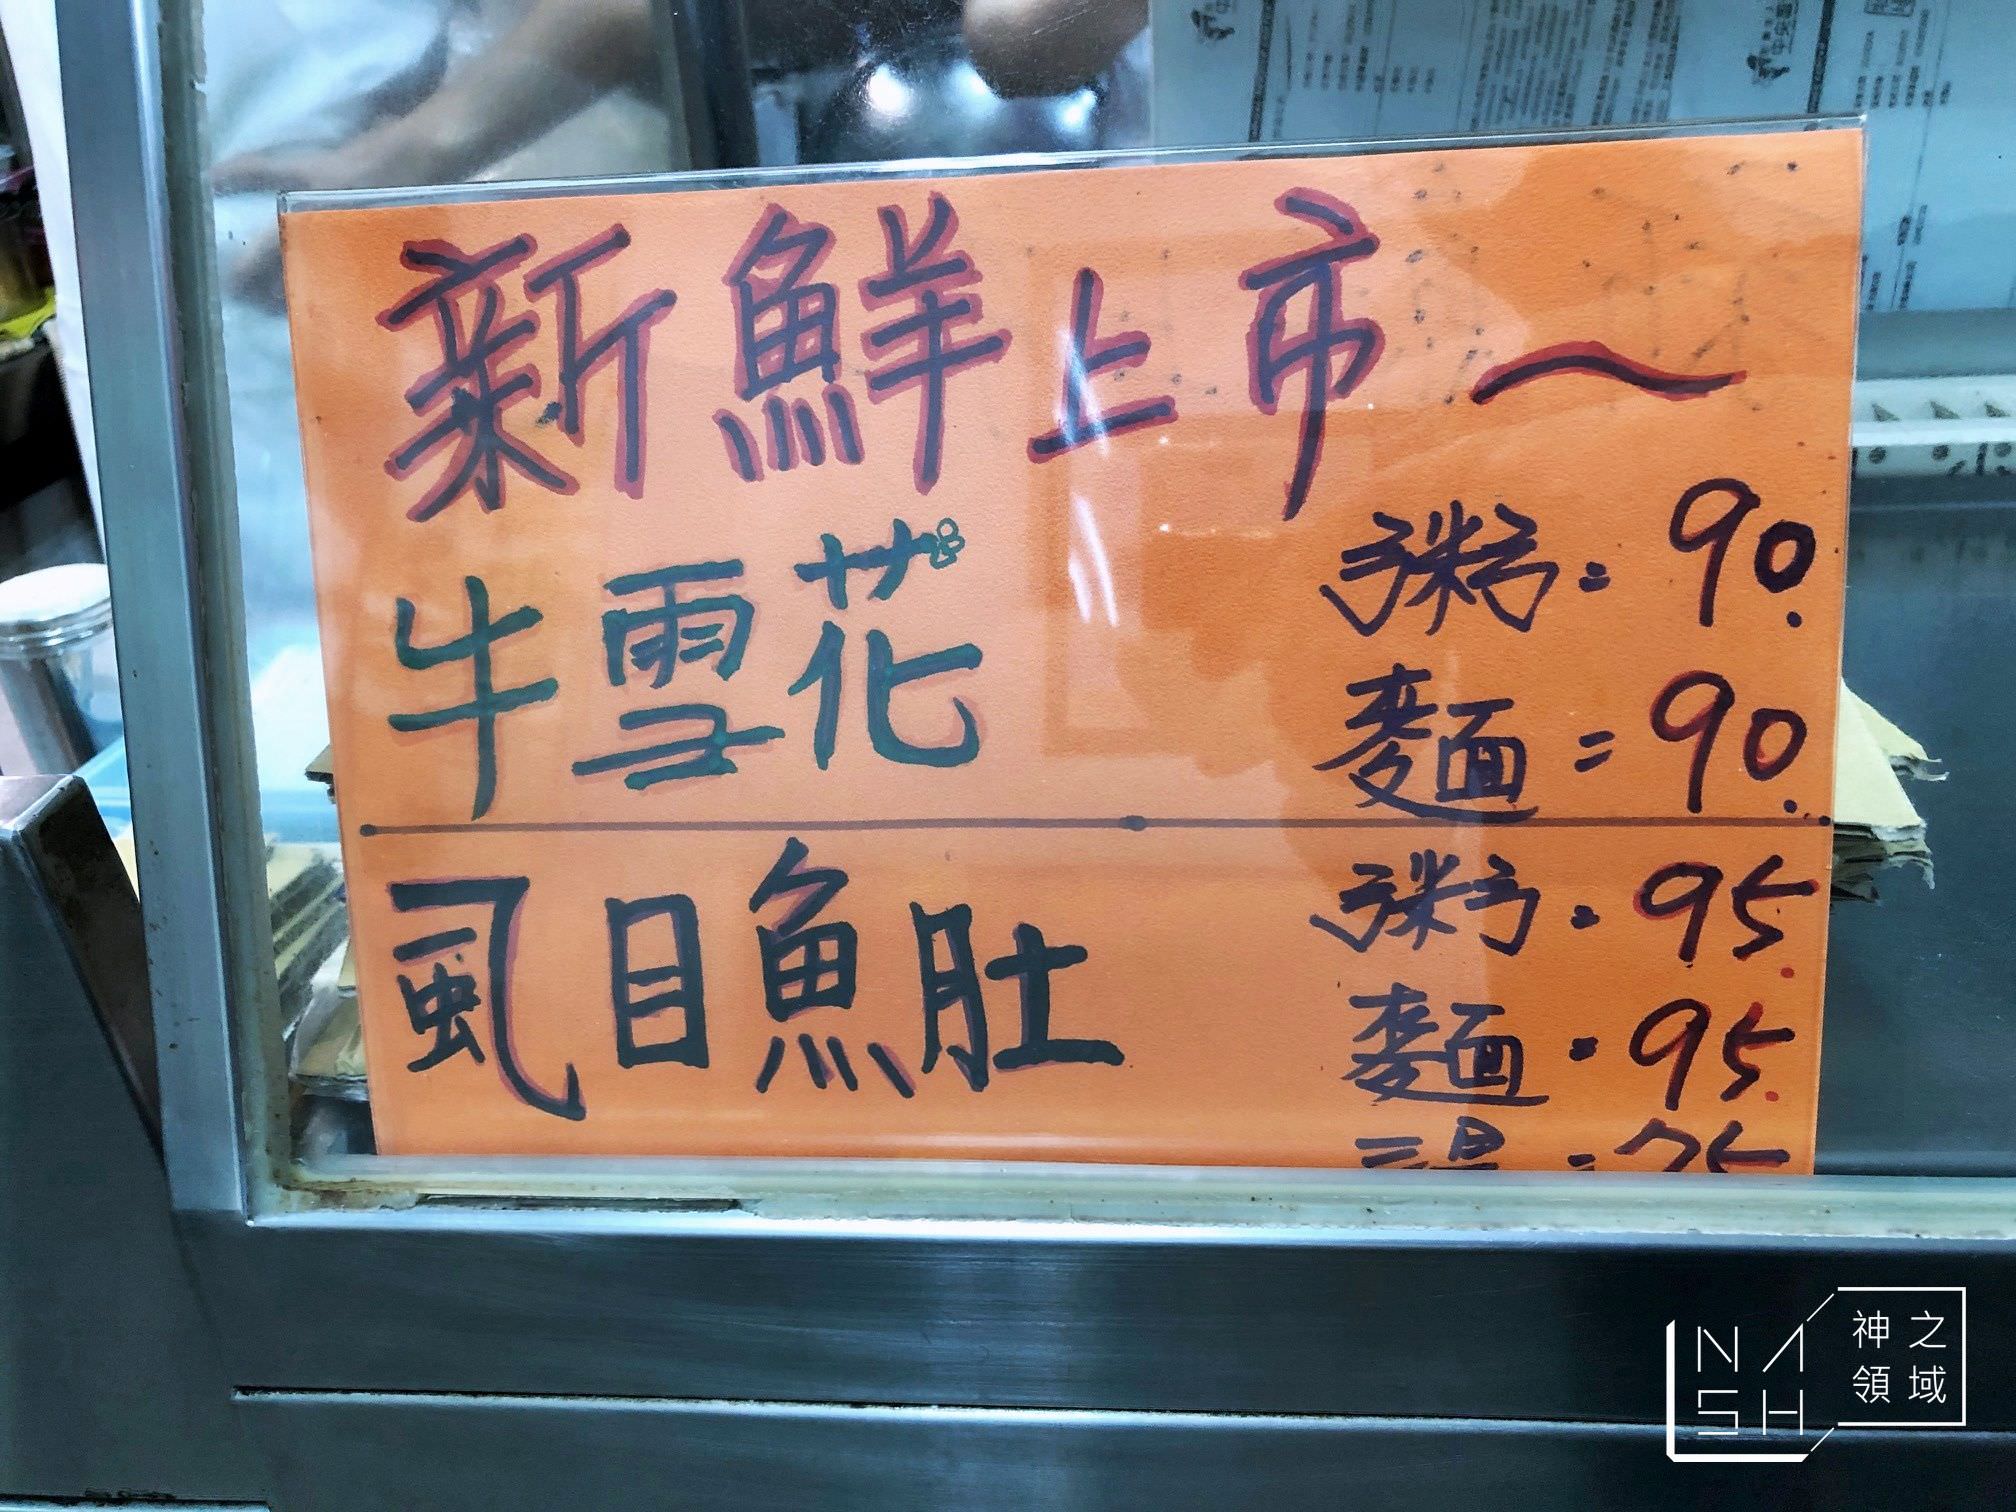 新鮮上市~
牛雪花
粥=90.
麵=90.
虱目魚肚
粥=95.
麵=95.
NASH
神之領域